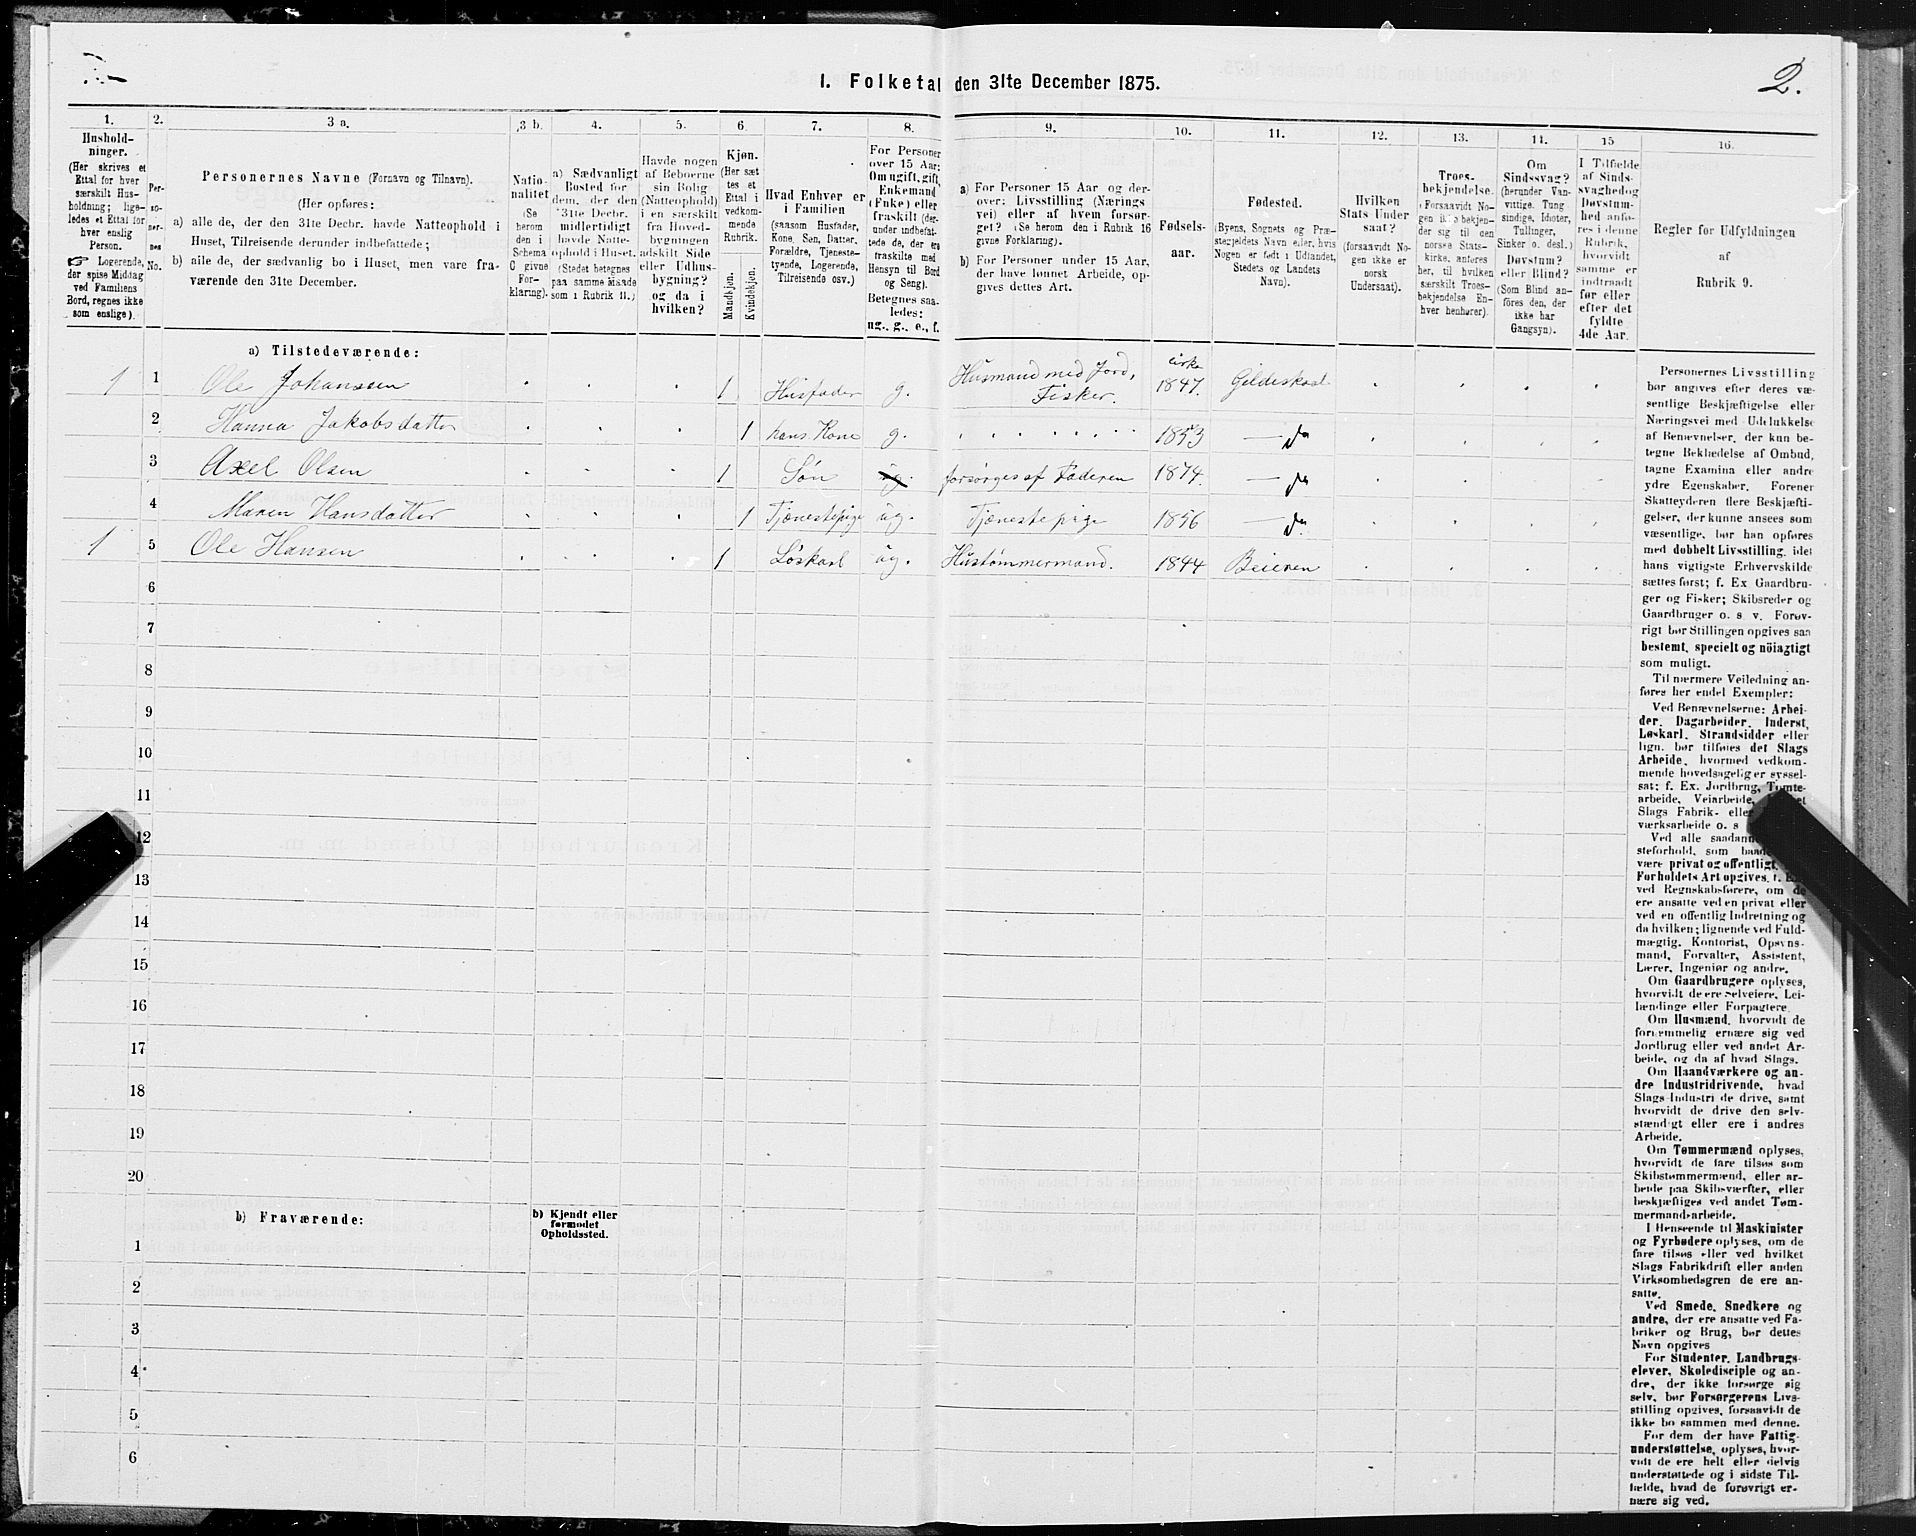 1. Folketal den 31te December 1875.
2.
1.
2.
3 a.
3 b.
4.
5.
6.
7.
8.
9.
10.
11.
12.
13.
14.
15
16.
Hushold-
ninger.
(Her skrives et
Ettal for hver
særskilt Hus-
holdning; lige-
ledes et Ettal for
hver enslig
Person.
☞ Logerende,
der spise Middag
ved Familiens
Bord, regnes ikke
som enslige).
Per-
so-
ner-
nes
No.
Personernes Navne (Fornavn og Tilnavn).
(Her opføres:
a) alle de, der den 31te Decbr. havde Natteophold i
Huset, Tilreisende derunder indbefattede;
b) alle de, der sædvanlig bo i Huset, men vare fra-
værende den 31te December.
Natio-
nalitet
(Se
herom
den i
Schema
C givne
For-
klaring).
a) Sædvanligt
Bosted for
dem, der den
31te Decbr.
midlertidigt
havde Natte-
ophold i Huset.
(Stedet betegnes
paa samme Maade
som i Rubrik 11.)
Havde nogen
af Beboerne
sin Bolig
(Natteophold)
i en særskilt
fra Hoved-
bygningen
adskilt Side
eller Udhus-
bygning?
og da i
hvilken?
Kjøn.
(Her sæt
tes et
Ettal i
vedkom-
mende
Rubrik.
Mandkjøn.
Kvindekjøn.
Hvad Enhver er
i Familien
(saasom Husfader,
Kone, Søn, Datter,
Forældre, Tjeneste-
tyende, Logerende,
Tilreisende osv.)
For Personer
over 15 Aar:
Om ugift, gift,
Enkemand
(Enke) eller
fraskilt (der-
under indbefat-
tede de, der ere
fraskilte med
Hensyn til Bord
og Seng).
Betegnes saa-
ledes:
ug., g., e., f.
a) For Personer 15 Aar og der-
over: Livsstilling (Nærings
vei) eller af hvem forsør-
get? (Se herom den i Rubrik 16
givne Forklaring).
b) For Personer under 15 Aar,
der have lønnet Arbeide, op-
gives dettes Art.
Fødsels-
aar.
Fødested.
(Byens, Sognets og Præ-
stegjeldets Navn eller, hvis
Nogen er født i Udlandet,
Stedets og Landets
Navn).
Hvilken
Stats Under
saat?
(forsaavidt No-
gen ikke er
norsk
Undersaat).
Troes-
bekjendelse.
(Forsaavidt No-
gen ikke bekjen-
der sig til den
norske Stats-
kirke, anføres
her, til hvilken
særskilt Troes-
bekjendelse En-
hver henhører).
Om
Sindssvag?
(herunder Van-
vittige, Tung
sindige, Idioter,
Tullinger,
Sinker o. desl.)
Døvstum?
eller Blind?
(Som Blind an-
føres den, der
ikke har
Gangsyn).
I Tilfælde
af Sinds-
svaghed og
Døvstum-
hed anfø-
res i denne
Rubrik,
hvorvidt
samme er
indtraadt
før eller
efter det
fyldte
4de Aar.
Regler for Udfyldningen
af
Rubrik 9.
a) Tilstedeværende:
1 1 Ole Johanssen 1 Husfader g. Husmand med Jord, Fisker. cirka 1847. Gildeskaal
2 Hanna Jakobsdatter 1 hans Kone g. 1853 — do
3 Axel Olsen 1 Søn ug. forsørges af Faderen 1874. — do
4 Maren Hansdatter 1 Tjenestepige ug. Tjenestepige 1856 — do
1 5 Ole Hansen 1 Løskarl ug. Hustømmermand. 1844 Beieren
6
7
8
9
10
11
12
13
14
15
16
17
18
19
20
b) Fraværende:
b) Kjendt eller
formodet
Opholdssted.
1
2
3
4
5
6
Personernes Livsstilling
bør angives efter deres væ-
sentlige Beskjæftigelse eller
Næringsvei med Udelukkelse
af Benævnelser, der kun be-
tegne Beklædelse af Ombud,
tagne Examina eller andre
ydre Egenskaber. Forener
Skatteyderen flere Beskjæfti-
gelser, der kunne ansees som
væsentlige, bør han opføres
med dobbelt Livsstilling, idet
hans vigtigste Erhvervskilde
sættes først; f. Ex Gaardbru-
ger og Fisker; Skibsreder og
Gaardbruger o. s. v. Forøv-
rigt bør Stillingen opgives saa
bestemt, specielt og nöiagtigt
som muligt.
Til nærmere Veiledning an-
føres her endel Exempler:
Ved Benævnelserne: Arbei-
der, Dagarbeider, Inderst,
Løskarl, Strandsidder eller
lign. bør tilføies det Slags
Arbeide, hvormed vedkom-
mende hovedsagelig er syssel-
sat; f. Ex. Jordbrug, Tomte-
arbeide, Veiarbeide,
Slags Fabrik- eller
værksarbeide o. s
Ved alle saadanne
steforhold, som baade
være privat og offentligt,
Forholdets Art opgives, f. Ex.
ved Regnskabsførere, om de
ere ansatte ved en privat eller
ved en offentlig Indretning og
da hvilken; lignende ved Fuld-
mægtig, Kontorist, Opsyns-
mand, Forvalter, Assistent,
Lærer, Ingeniør og andre.
Om Gaardbrugere oplyses,
hvorvidt de ere Selveiere, Lei-
lændinge eller Forpagtere.
Om Husmænd, hvorvidt de
fornemmelig ernære sig ved
Jordbrug eller ved andet Ar-
beide, og da af hvad Slags.
Om Haandværkere og an-
dre Industridrivende, hvad
Slags Industri de drive, samt
hvorvidt de drive den selv-
stændigt eller ere i andres
Arbeide.
Om Tømmermænd oplyses,
hvorvidt de fare tilsøs som
Skibstømmermænd, eller ar-
beide paa Skibsværfter, eller
beskjæftiges ved andet Tøm-
mermandsarbeide.
I Henseende til Maskinister
og Fyrbødere oplyses, om de
fare tilsøs eller ved hvilket
Slags Fabrikdrift eller anden
Virksomhedsgren de ere an-
satte.
Ved Smede, Snedkere og
andre, der ere ansatte ved Fa-
briker og Brug, bør dettes
Navn opgives
For Studenter, Landbrugs-
elever, Skoledisciple og an-
dre, der ikke forsørge sig
selv, bør Forsørgerens Livs-
stilling opgives, forsaavidt de
ikke bo sammen med denne.
For dem der have Fattig-
understøttelse, oplyses, hvor-
vidt de ere helt eller delvis
understøttede og i sidste Til-
fælde, hvad de forøvrigt er-
nære sig ved.